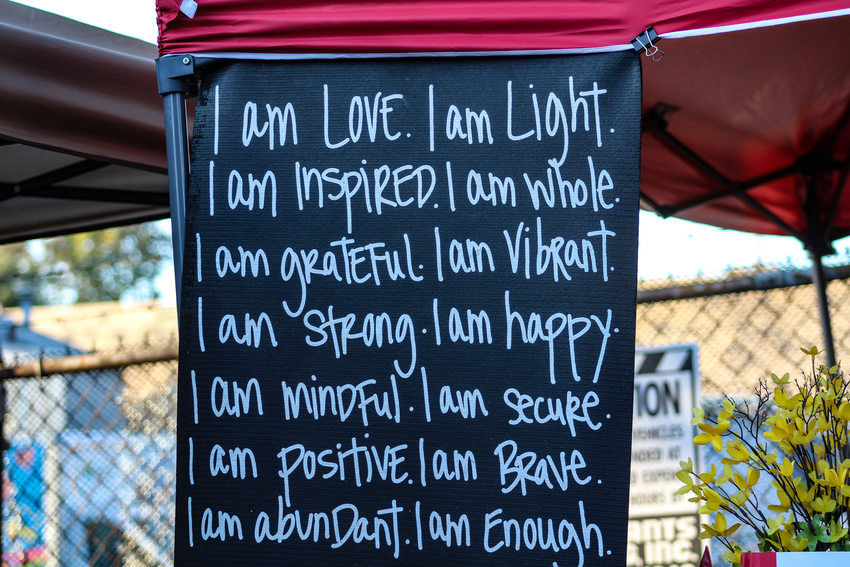 I am LOVE. I am Light.
I am INSPIRED. I am whole.
I am grateful. I am Vibrant.
I am strong. I am happy.
I am mindful. I am secure.
I am positive. I am Brave.
I am abundant. I am Enough.
ION
EHICLES
NDED AT
D EXPENSE
HOURS
ANTS
INC.